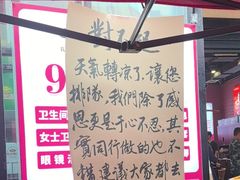 對不起
天氣轉凉了,讓您
排隊,我們除了感
恩更是于心不忍,其
實同行做的也不
錯,建議大家都去
9
卫生间
女士卫
眼镜